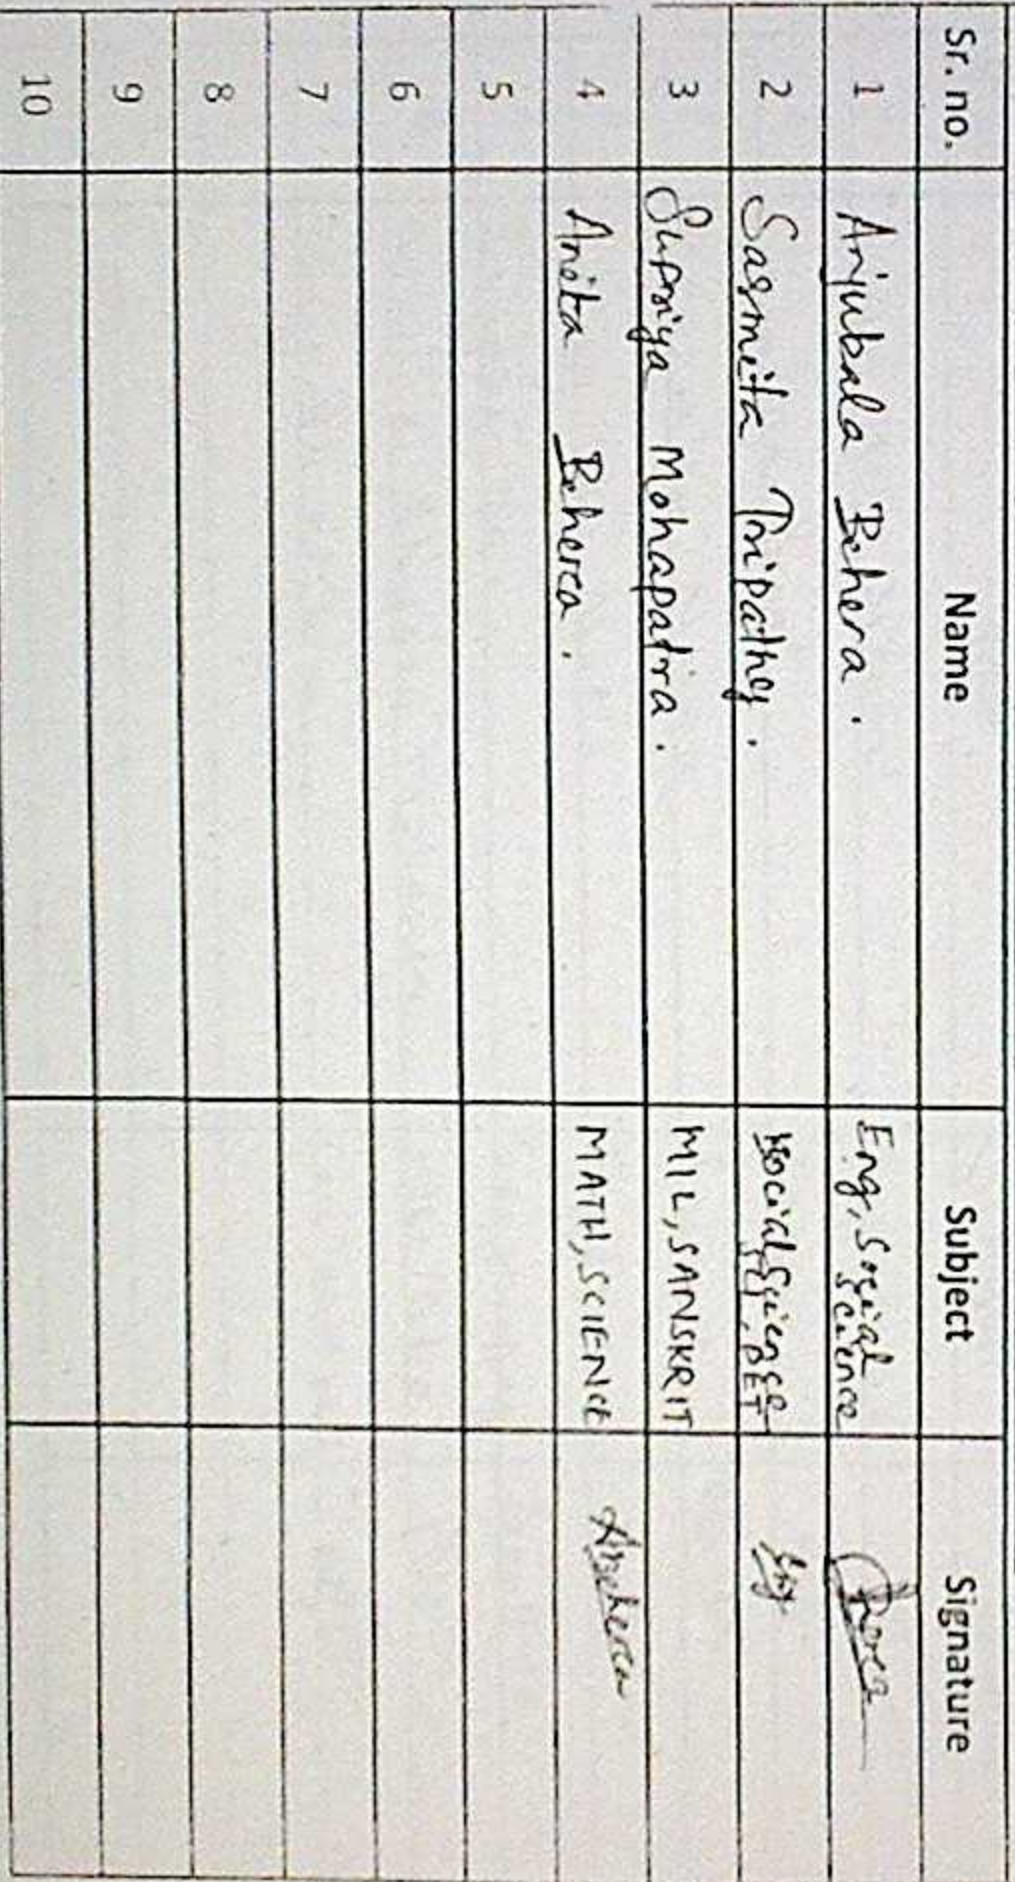 Sr. no. Name Subject Signature
1 Anjubala Behera. Eng, Social Science
2 Sasmita Tripathy. Social Science, PET
3 Supriya Mohapatra. MIL, SANSKRIT
4 Anita Behera. MATH, SCIENCE ABehera
5
6
7
8
9
10